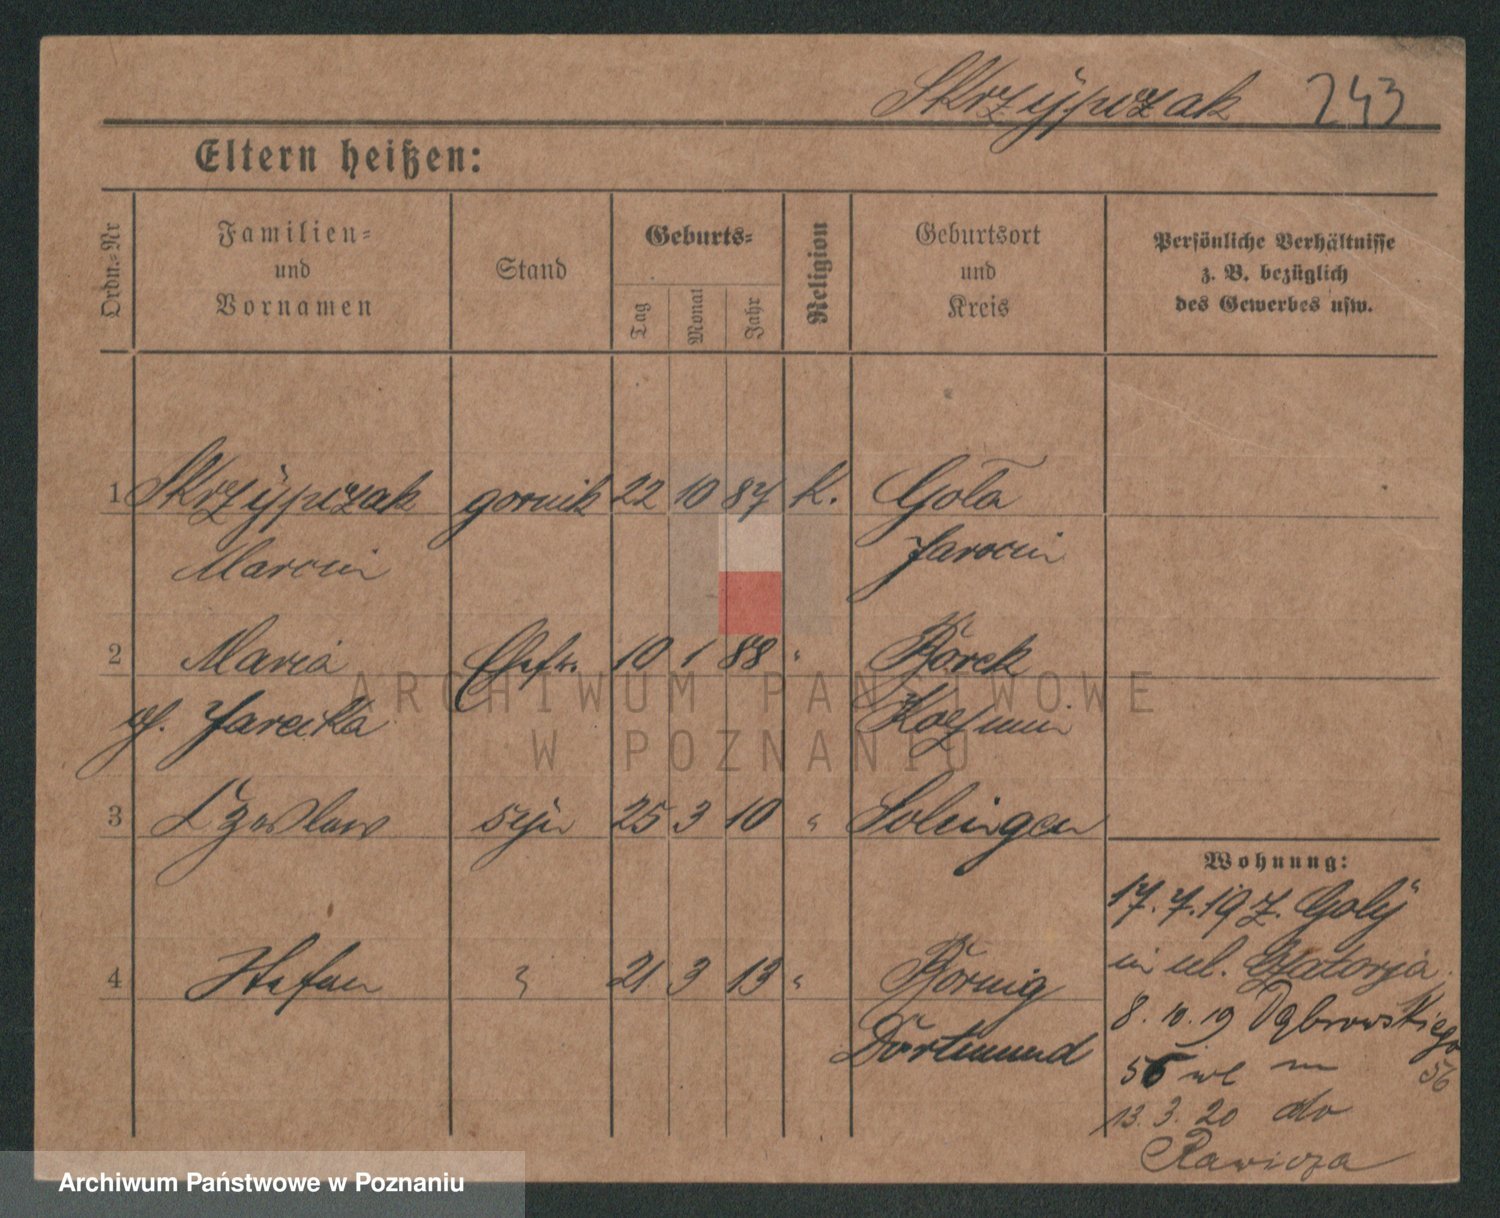 Skrzypczak 243
Eltern heißen:
Ordn.-Nr
Familien-
und
Vornamen
Stand
Geburts-
Tag
Monat
Jahr
Religion
Geburtsort
und
Kreis
Persönliche Verhältnisse
z. B. bezüglich
des Gewerbes usw.
1 Skrzypczak gornik 22 10 87 k. Gola
Marcin Jarocin
2 Maria Ehefr. 10 1 88 " Borek
Koźmin
3 Czesław syn 25 3 10 " Solingen
Wohnung:
17.7.19 Z. Goly
4 Stefan " 21 3 13 " Börnig
Dortmund
in ul.
8.10.19 Dąbrowskiego
56
13.3.20 do
Rawicza
ARCHIWUM PAŃSTWOWE
W POZNANIU
Archiwum Państwowe w Poznaniu